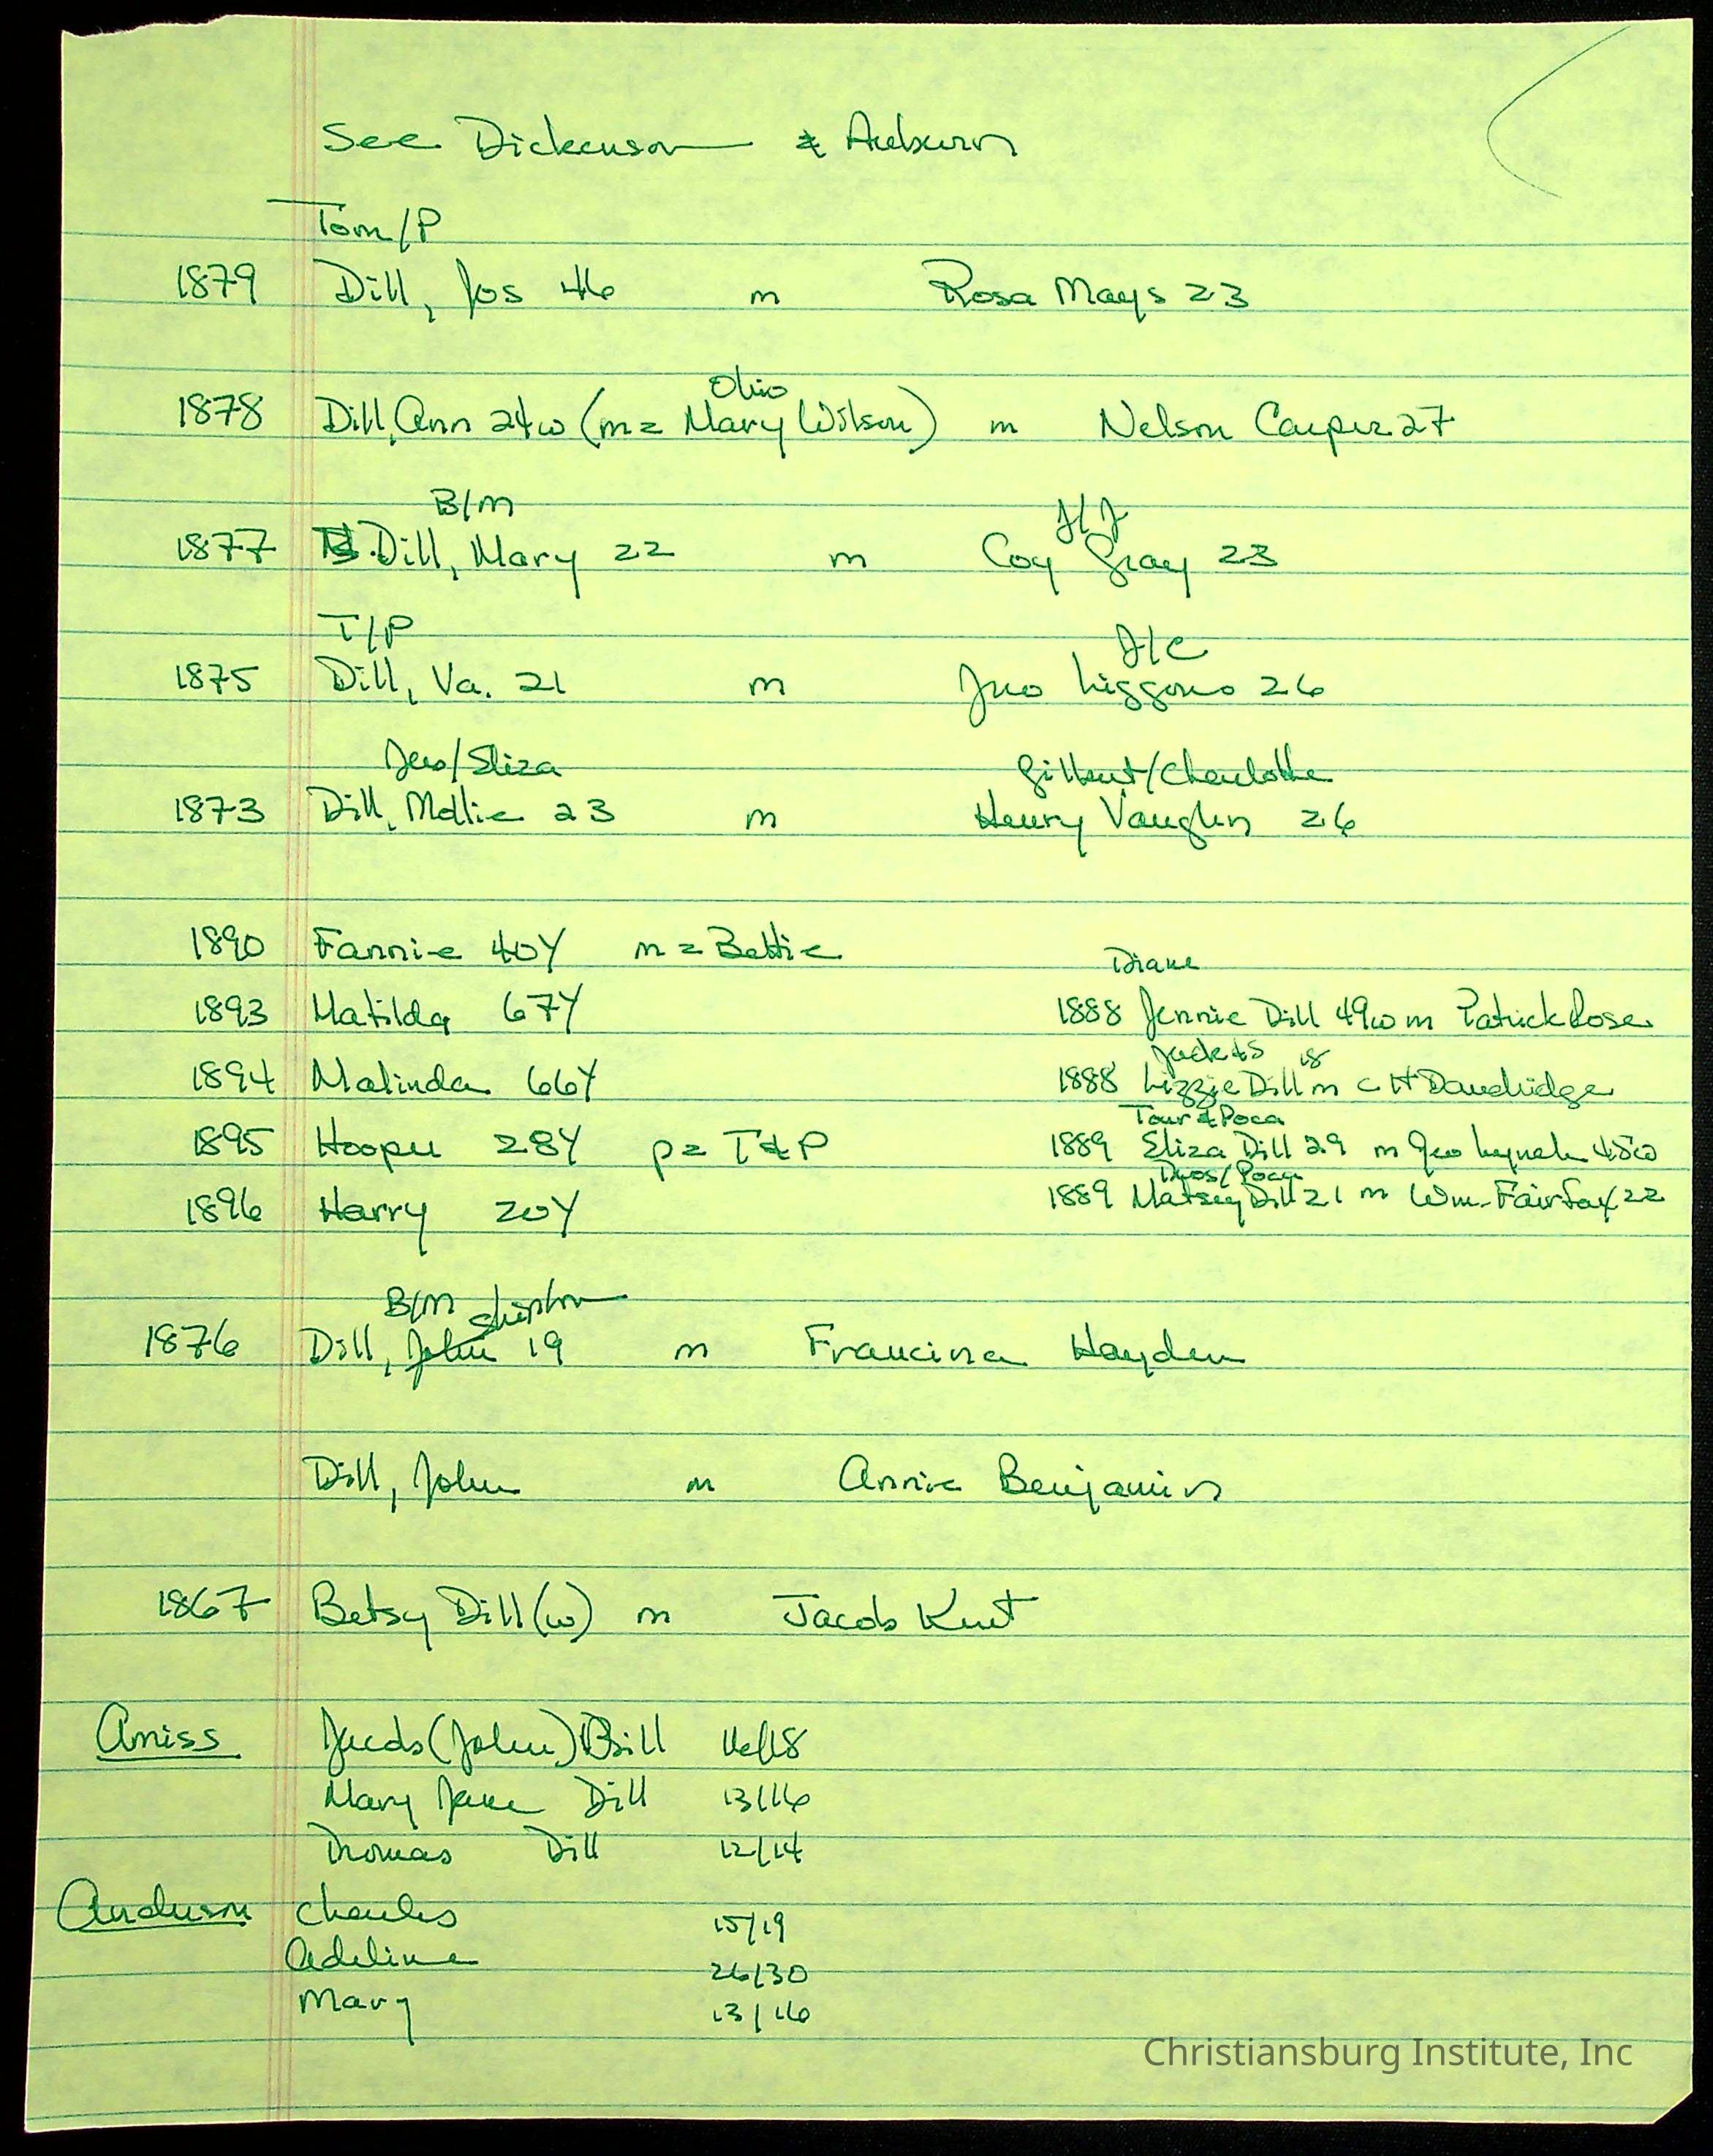 See Dickenson & Auburn
Tom/P
1879 Dill, Jos 46 m Rosa Mays 23
Ohio
1878 Dill, Ann 24w (m= Mary Wilson) m Nelson Casper 27
B/M J/J
1877 Dill, Mary 22 m Coy Gray 23
T/P J/C
1875 Dill, Va. 21 m Jno Liggons 26
Jno/Eliza Gilbert/Charlotte
1873 Dill, Mollie 23 m Henry Vaughn 26
1890 Fannie 40Y m = Bettie
Diane
1893 Matilda 67Y 1888 Jennie Dill 49w m Patrick Rose
Jack & S 18
1894 Malinda 66Y 1888 Lizzie Dill m C H Dandridge
Tom & Poca
1895 Hooper 28Y p= T & P 1889 Eliza Dill 29 m Geo Lynch 45w
Thos/Poca
1896 Harry 20Y 1889 Matsey Dill 21 m Wm. Fairfax 22
B/M
1876 Dill, John 19 m Francina Hayden
Dill, John m Annie Benjamin
1867 Betsy Dill (w) m Jacob Kent
Amiss Jacob (John) Dill 16/18
Mary Jane Dill 13/16
Thomas Dill 12/14
Anderson Charles 15/19
Adeline 26/30
Mary 13/16
Christiansburg Institute, Inc